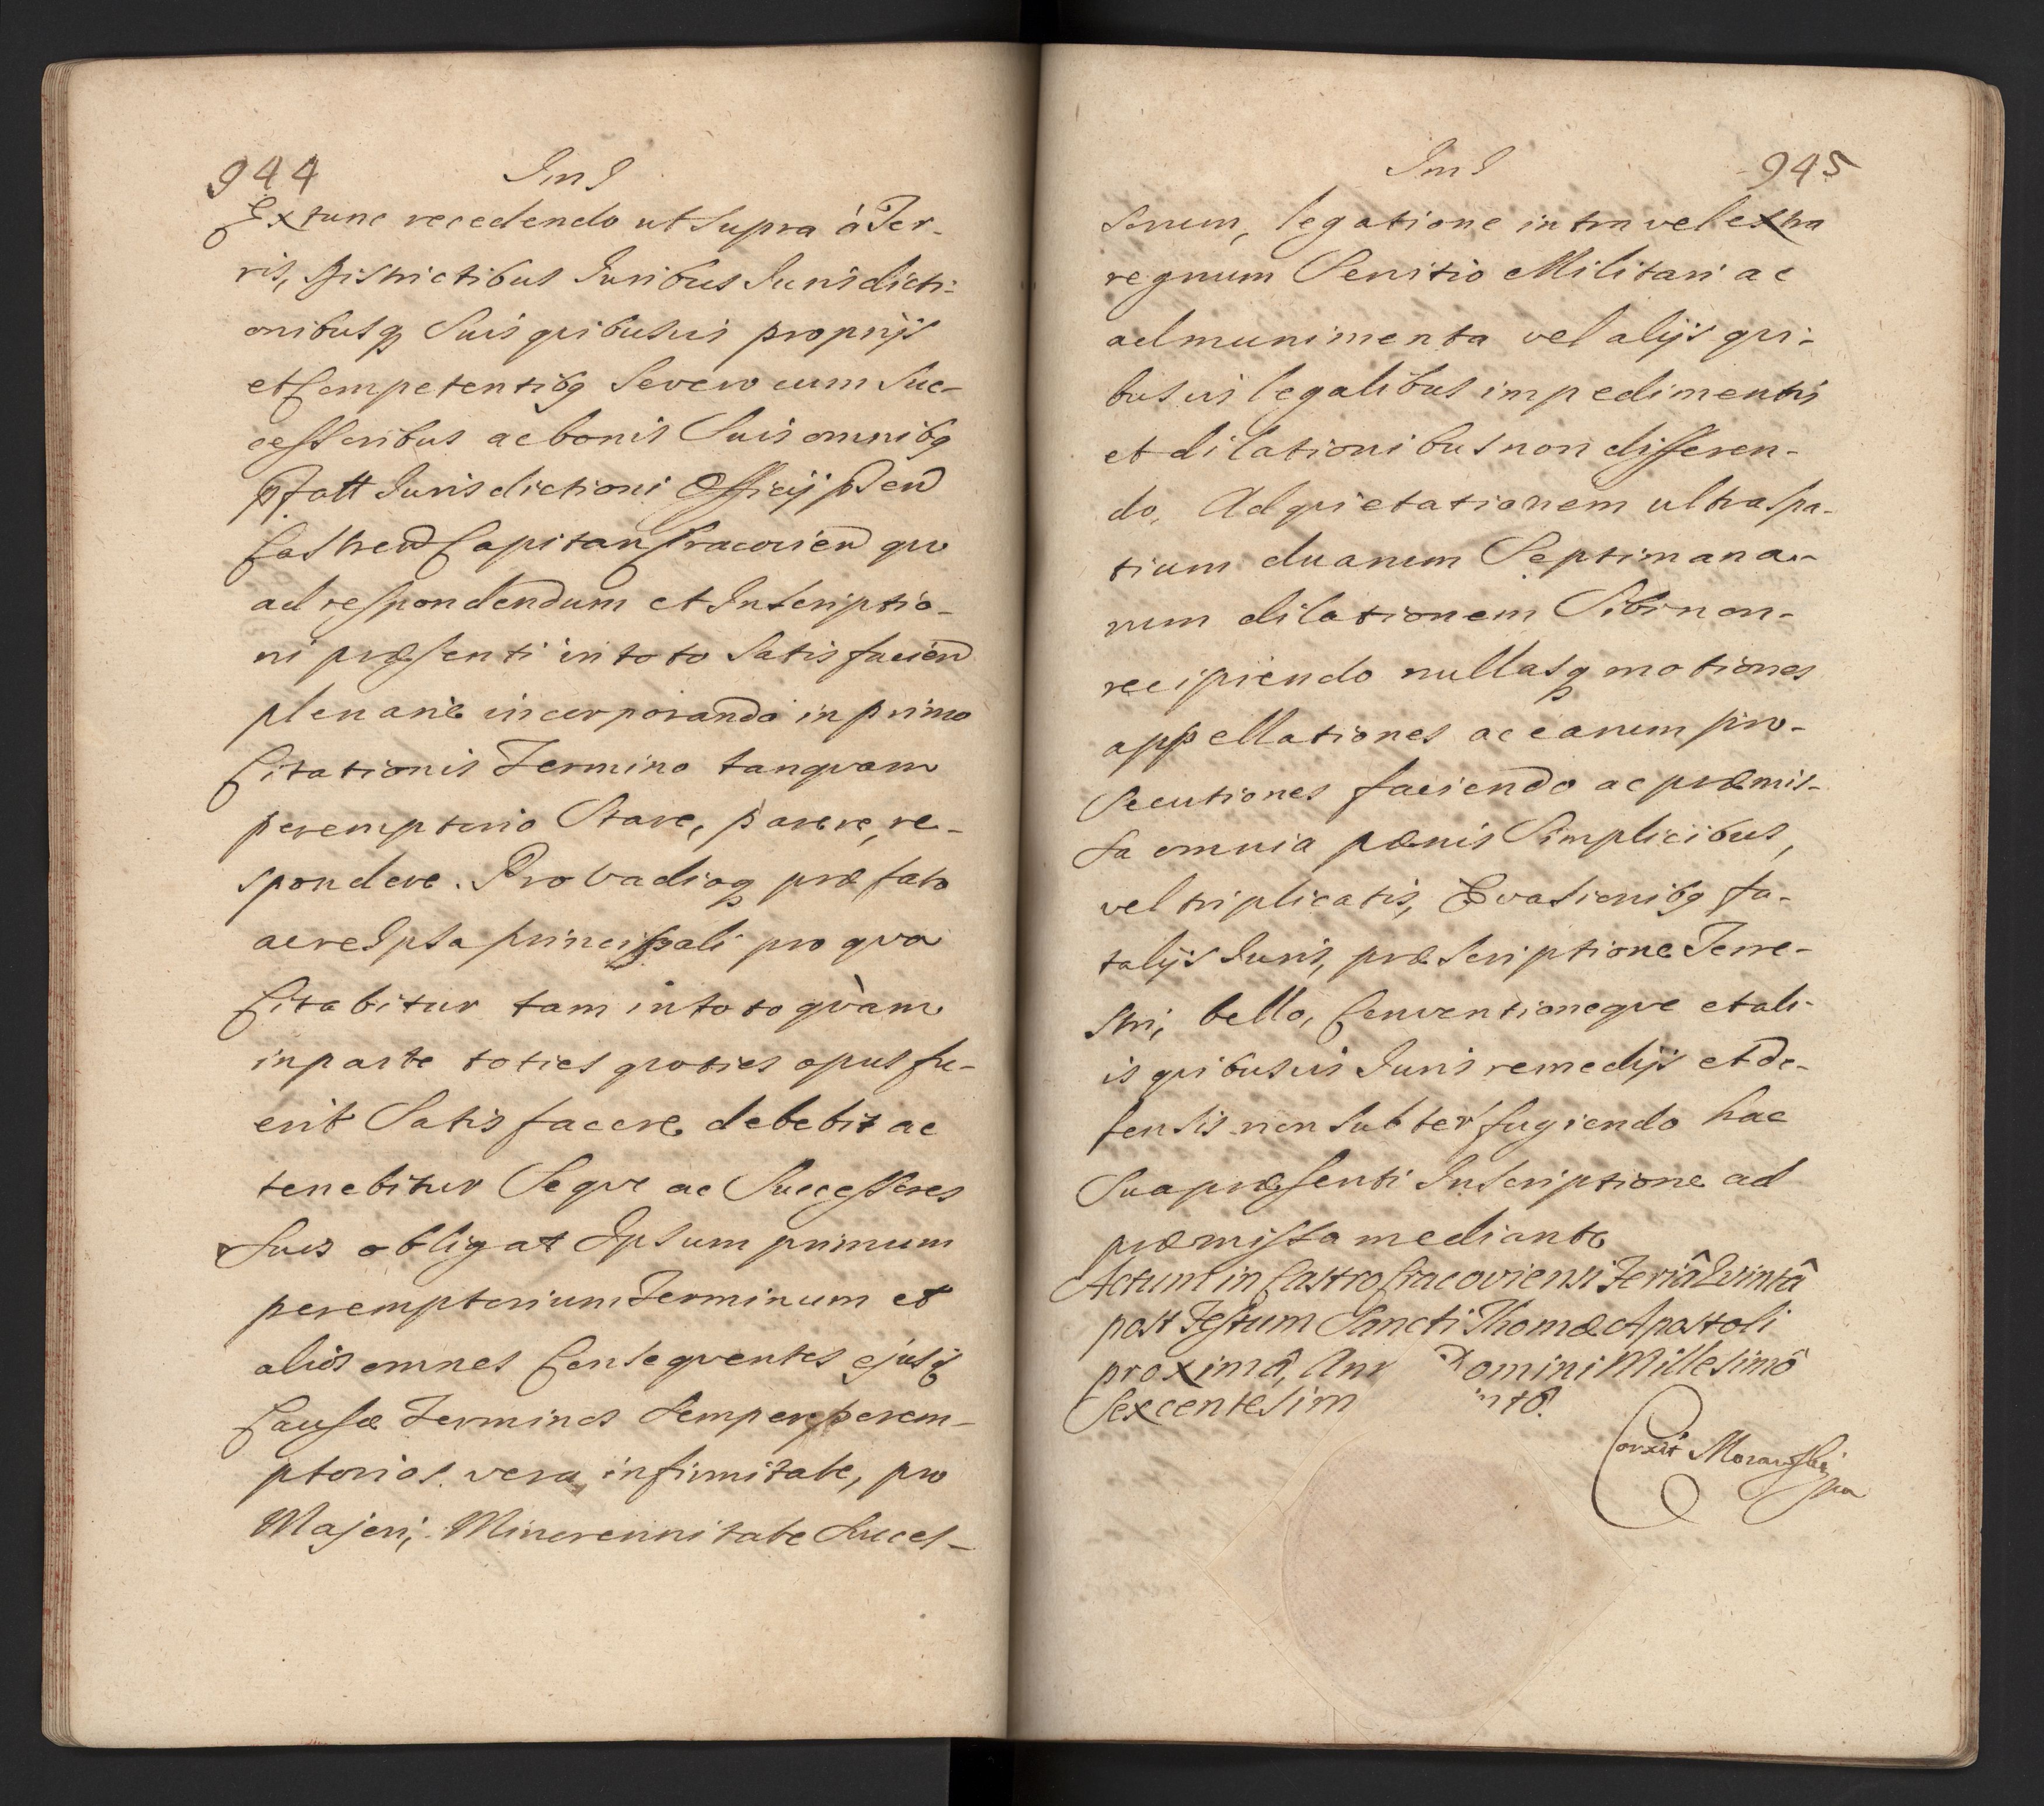 944 Ims
Extunc recedendo ut Supra à Ter-
ris, Districtibus Iuribus Iurisdicti-
onibusq Suis quibusvis proprijs
et Competentibq Severo cum Suc-
cessoribus ac bonis Suis omnibq
Pfatt Iurisdictioni Officij pŝen
Castren Capitan Cracovien quo
ad respondendum et Inscriptio-
ni præsenti in toto Satisfacien
plenarie incorporando in primo
Citationis Termino tanquam
peremptorio Stare, parere, re-
spondere. Pro Vadioq præfato
ac re Ipsa principali pro qua
Citabitur tam in toto quàm
in parte toties quoties opus fu-
erit Satisfacere debebit ac
tenebitur Seque ac Successores
Suos obligat Ipsum primum
peremptorium Terminum et
alios omnes Consequentes ejusq
Causæ Terminos Semper perem-
ptorios vera infirmitate, pro
Majori, Minorennitate Succes-
Ims 945
sorum, legatione intra vel extra
regnum Servitio Militari ac
ad munimenta vel alijs qui-
busvis legalibus impedimentis
et dilationibus non differen-
do, Ad quietationem ultra spa-
tium duarum Septimana-
rum dilationem Sibi non-
recipiendo nullasq motiones
appellationes ac earum pro-
secutiones faciendo ac præmis-
sa omnia pœnis Simplicibus,
vel triplicatis, Evasionibq fa-
talijs Iuris, præscriptione Terre-
stri, bello, Conventioneque et ali-
is quibusvis Iuris remedijs et de-
fensis non Subterfugiendo hac
Sua præsenti Inscriptione ad
præmissa mediante
Actum in Castro Cracoviensi Feriâ Quintâ
post Festum Sancti Thomæ Apostoli
proximâ, Ann Domini Millesimô
Sexcentesim intô.
Correxit Morawski
mp